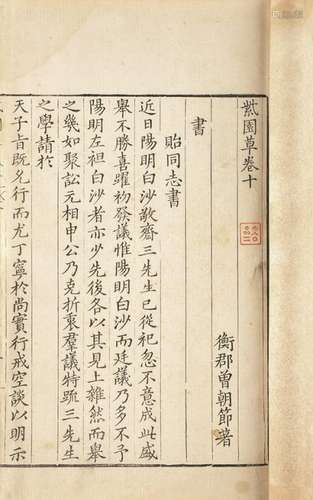 紫園草卷十
衡郡曾朝節著
書
貽同志書
近日陽明白沙敬齋三先生已從祀忽不意成此盛
舉不勝喜躍初發議惟陽明白沙而廷議乃多不予
陽明左袒白沙者亦少先後各以其見上雜然而舉
之幾如聚訟元相申公乃克折裏羣議特疏三先生
之學請於
天子㫖旣允行而尤丁寧於尚實行戒空談以明示